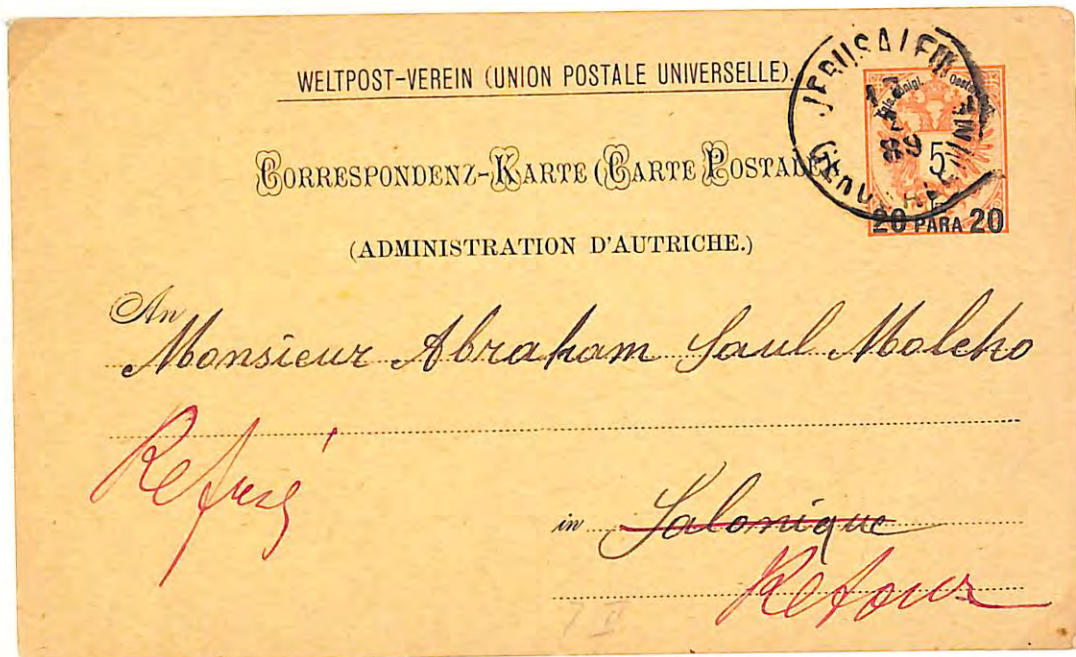 WELTPOST-VEREIN (UNION POSTALE UNIVERSELLE).
JERUSALEM
89
5
20 PARA 20
CORRESPONDENZ-KARTE (CARTE POSTALE)
(ADMINISTRATION D'AUTRICHE.)
An
Monsieur Abraham Saul Molcho
Refusé
in Salonique
Retour